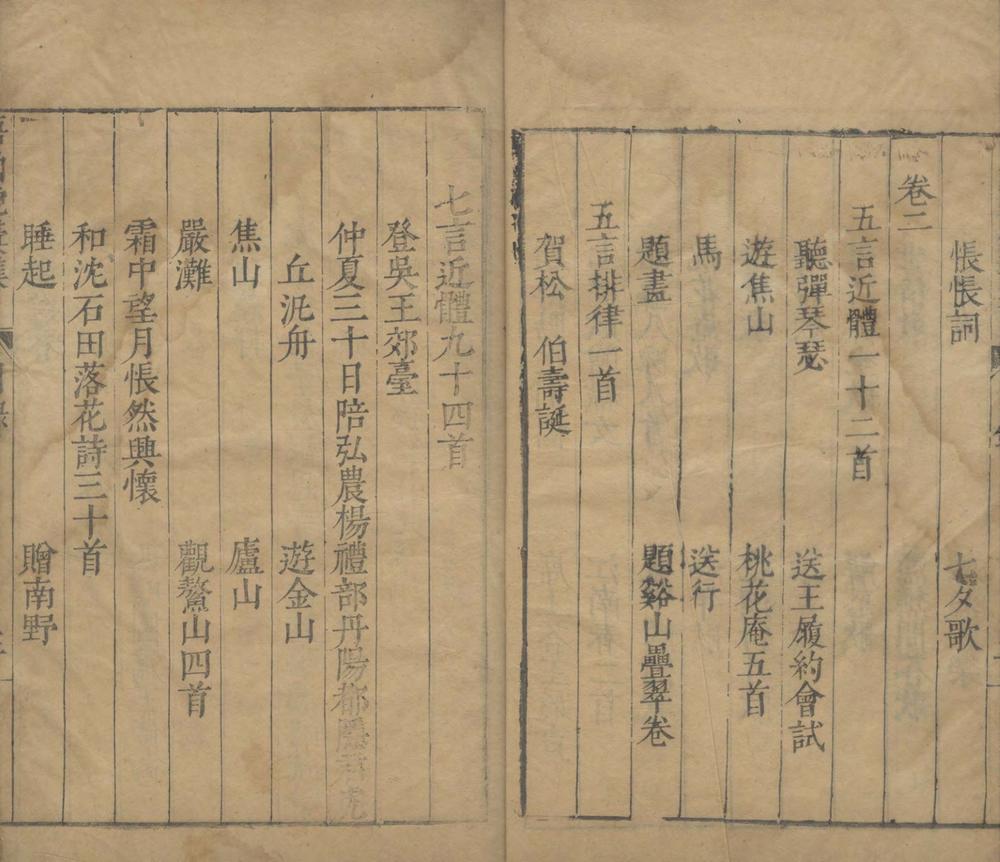 悵悵詞　七夕歌
卷二
五言近體一十二首
聽彈琴瑟　送王履約會試
遊焦山　桃花庵五首
馬　送行
題畫　題谿山疊翠卷
五言排律一首
賀松　伯壽誕
七言近體九十四首
登吳王郊臺
仲夏三十日陪弘農楊禮部丹陽都隱君虎
丘汎舟　遊金山
焦山　廬山
嚴灘　觀鰲山四首
霜中望月悵然興懷
和沈石田落花詩三十首
睡起　贈南野